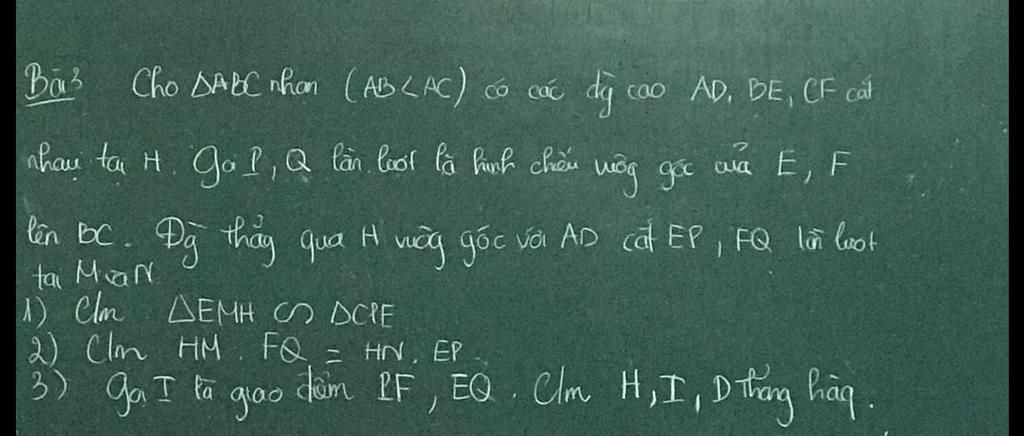 Bài 3 Cho ΔABC nhọn (AB < AC) có các đg cao AD, BE, CF cắt
nhau tại H. Gọi P, Q lần lượt là hình chiếu vuông góc của E, F
lên BC. Đg thẳng qua H vuông góc với AD cắt EP, FQ lần lượt
tại M và N
1) C/m ΔEMH ∽ ΔCPE
2) C/m HM . FQ = HN . EP
3) Gọi I là giao điểm PF, EQ. C/m H, I, D thẳng hàng.